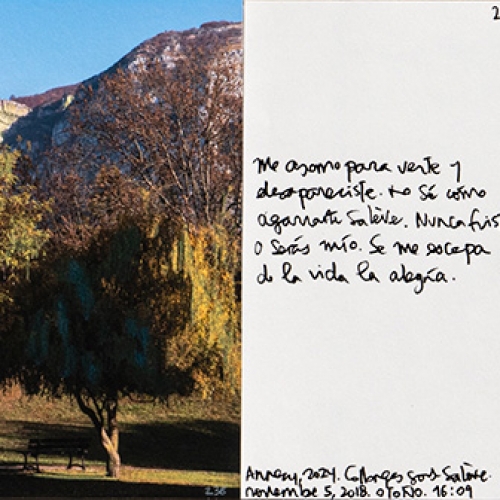 2
Me asomo para verte y
desapareciste. no sé cómo
agarrarte Salève. Nunca fuis
o serás mío. Se me escapa
de la vida la alegría.
Annecy, 2024. Collonges sous Salève.
noviembre 5, 2018. OTOÑO. 16:09
236